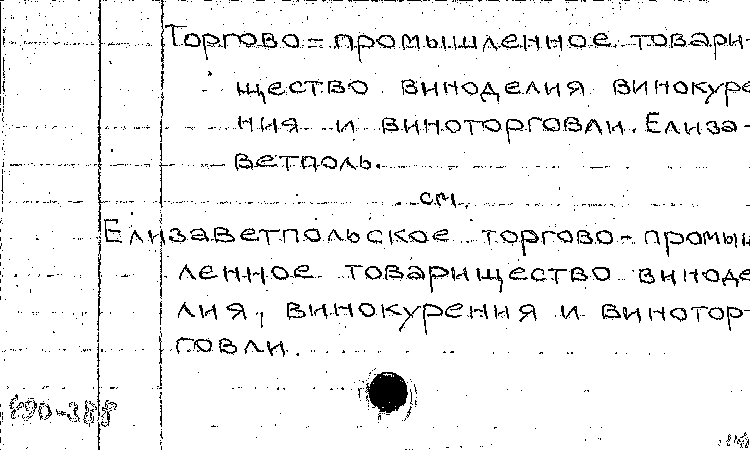 Торгово-промышленное товари-
щество виноделия винокуре
ния и виноторговли. Елиза-
ветполь.
см.
Елизаветпольское торгово-промыш
ленное товарищество виноде
лия, винокурения и винотор-
говли.
690-388